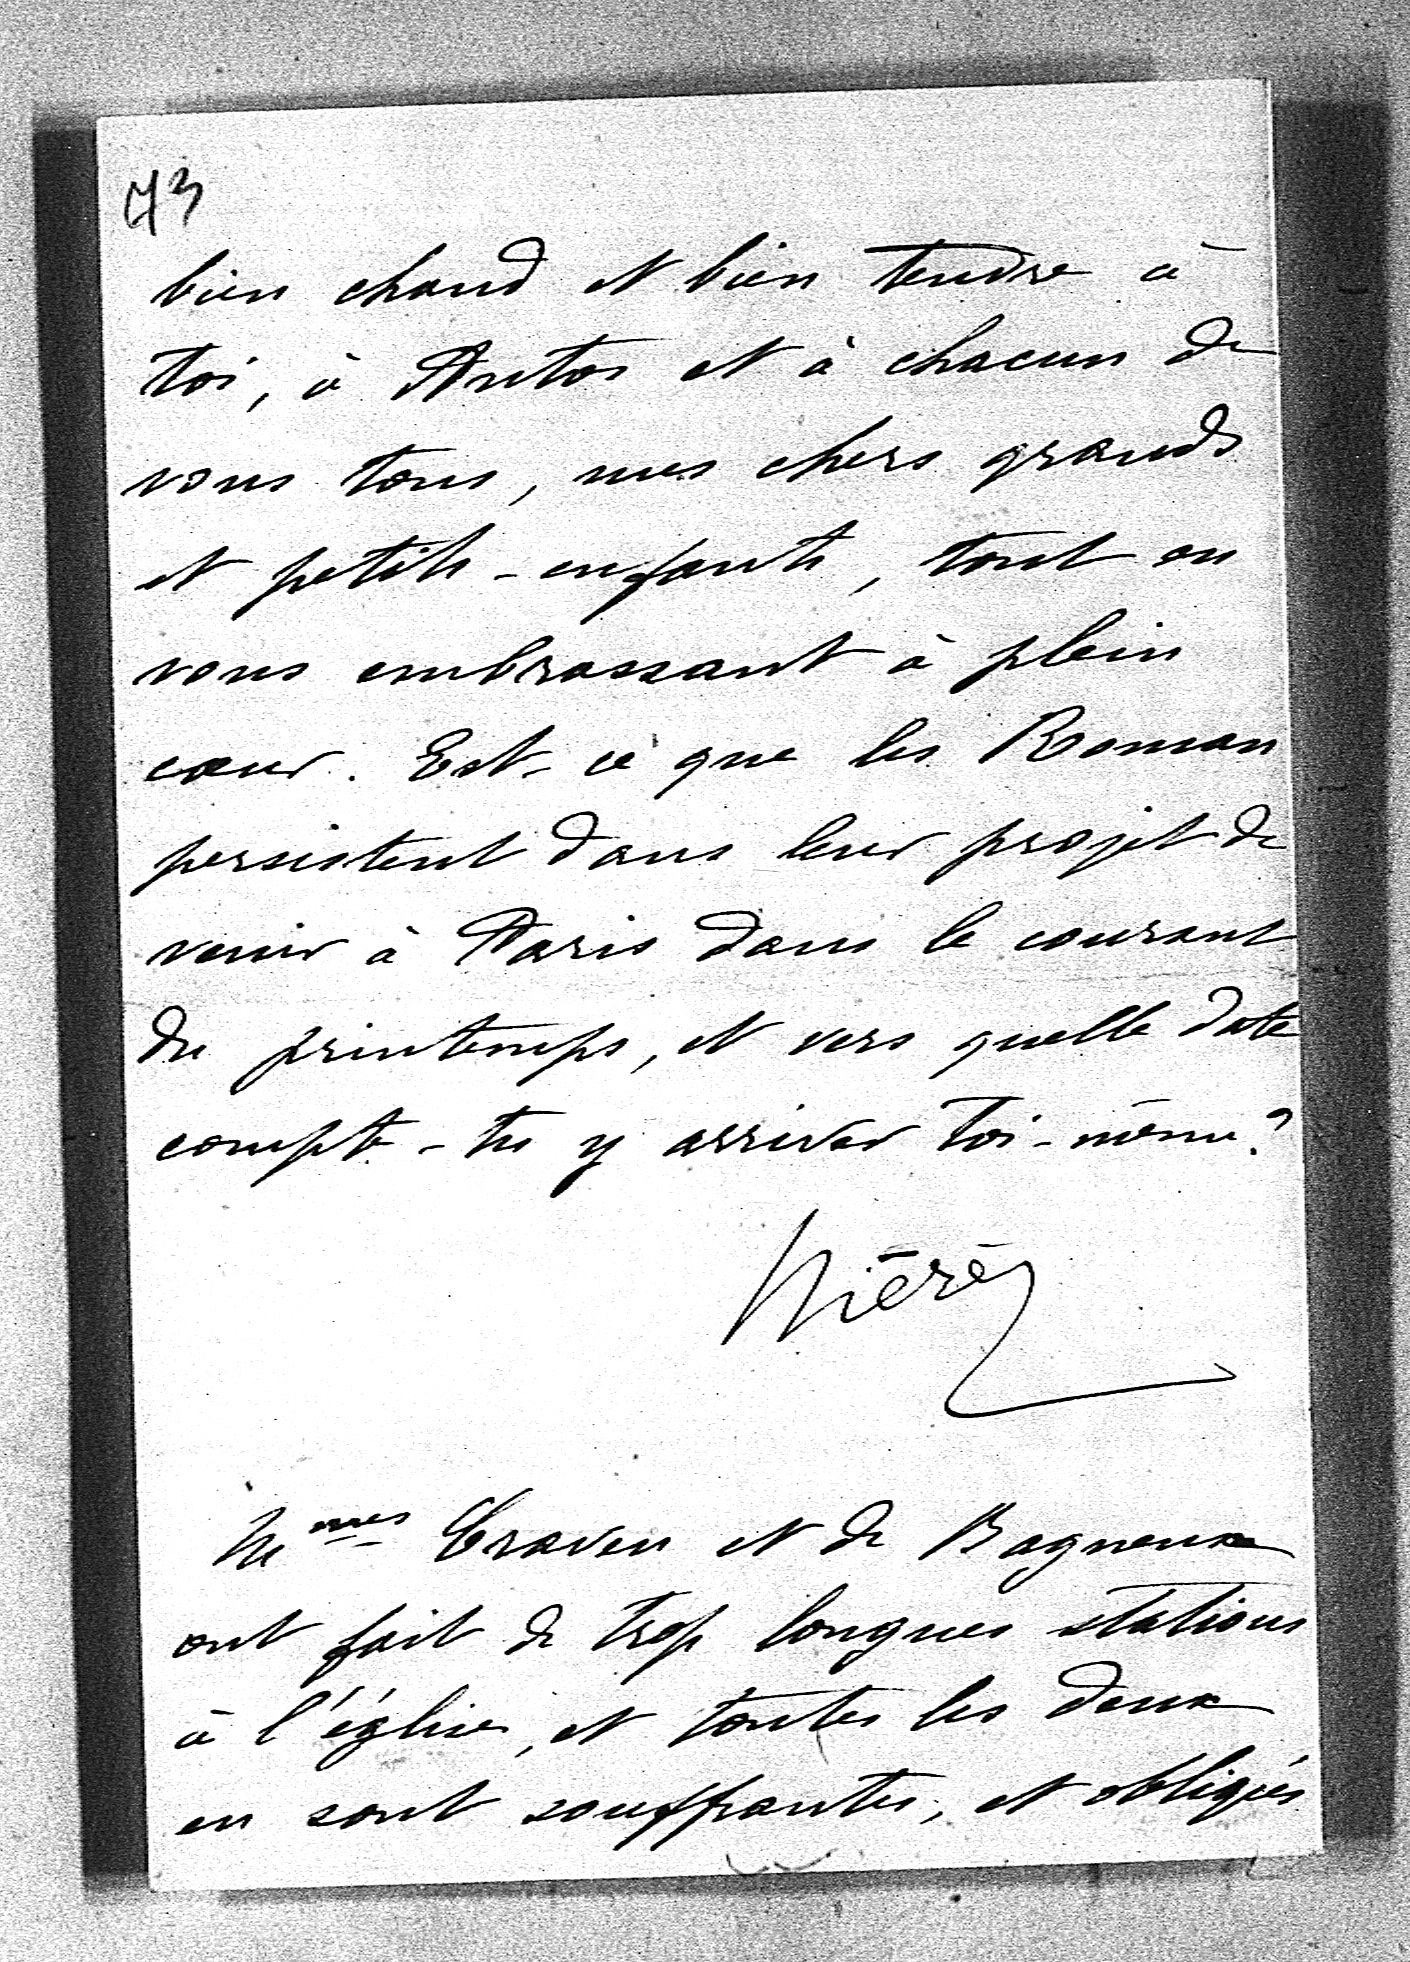 73
bien chaud et bien tendre à
toi, à Antos et à chacun de
vous tous, mes chers grands
et petits-enfants, tout en
vous embrassant à plein
cœur. Est-ce que les Roman
persistent dans leur projet de
venir à Paris dans le courant
du printemps, et vers quelle date
compte-tu y arriver toi-même?
Mmes Craven et de Bagneux
ont fait de trop longues stations
à l'église, et toutes les deux
en sont souffrantes, et obligées